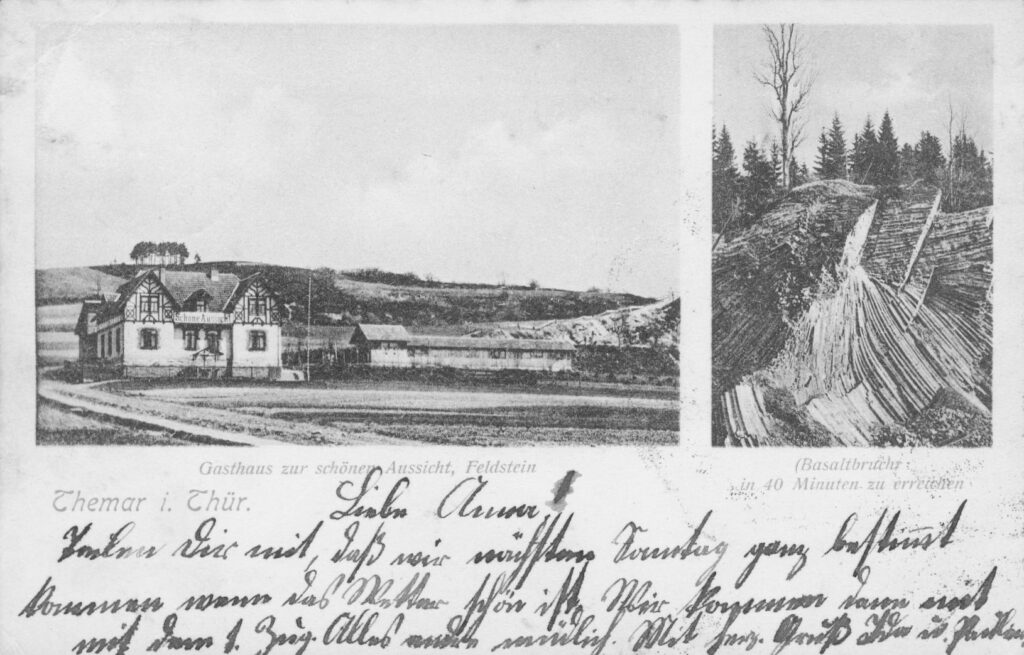 Schöne Aussicht
Gasthaus zur schönen Aussicht, Feldstein
(Basaltbruch)
in 40 Minuten zu erreichen
Themar i. Thür.
Liebe Anna!
Teilen Dir mit, daß wir nächsten Sonntag ganz bestimmt
kommen wenn das Wetter schön ist, Wir kommen dann mit
mit dem 1. Zug. Alles andre mündlich. Mit herz. Gruß Ida u.